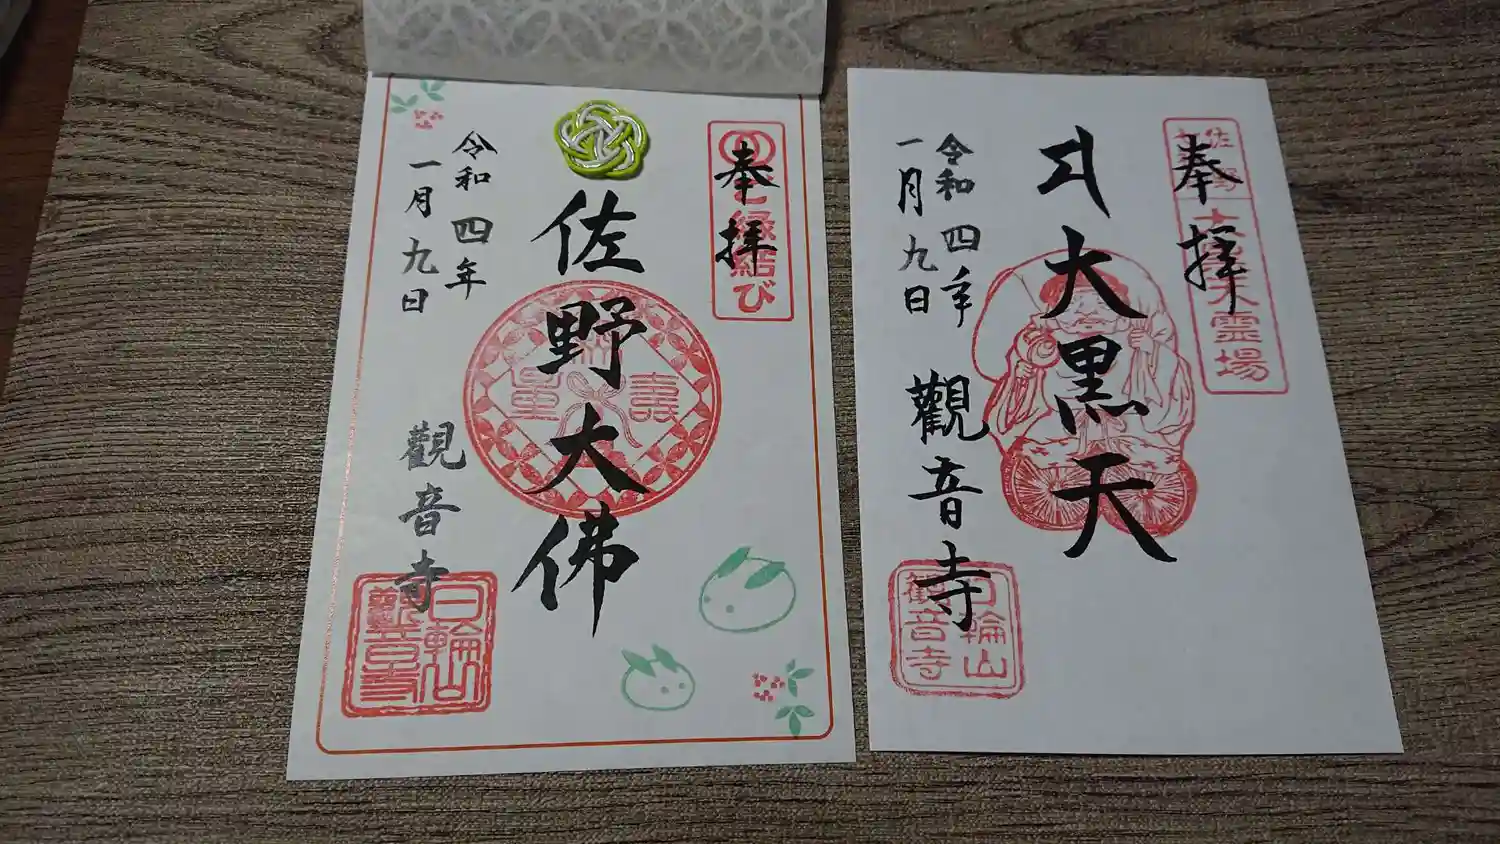 奉拝
縁結び
佐野大佛
壽
令和四年
一月九日
觀音寺
日輪山
觀音寺
奉拝
佐野
霊場
大黒天
令和四年
一月九日
觀音寺
日輪山
觀音寺